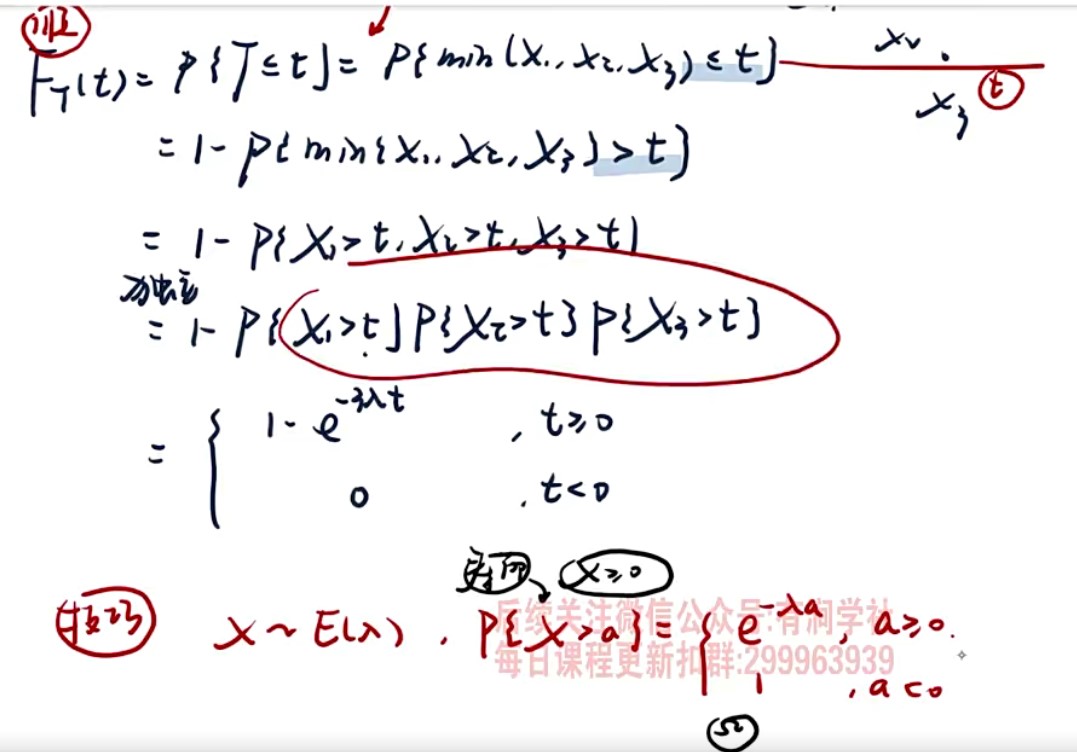 x₂
F_T(t) = P{T≤t} = P{min(X₁, X₂, X₃) ≤ t}
X₃ t
= 1- P{min{X₁, X₂, X₃} > t}
= 1- P{X₁>t, X₂>t, X₃>t}
独立
= 1- P{X₁>t}P{X₂>t}P{X₃>t}
= { 1- e^{-3λt} , t≥0
0 , t<0
X≥0
X ~ E(λ) , P{X>a} = { e^{-λa} , a≥0.
1 , a<0
后续关注微信公众号:有润学社
每日课程更新扣群:299963939
Ω